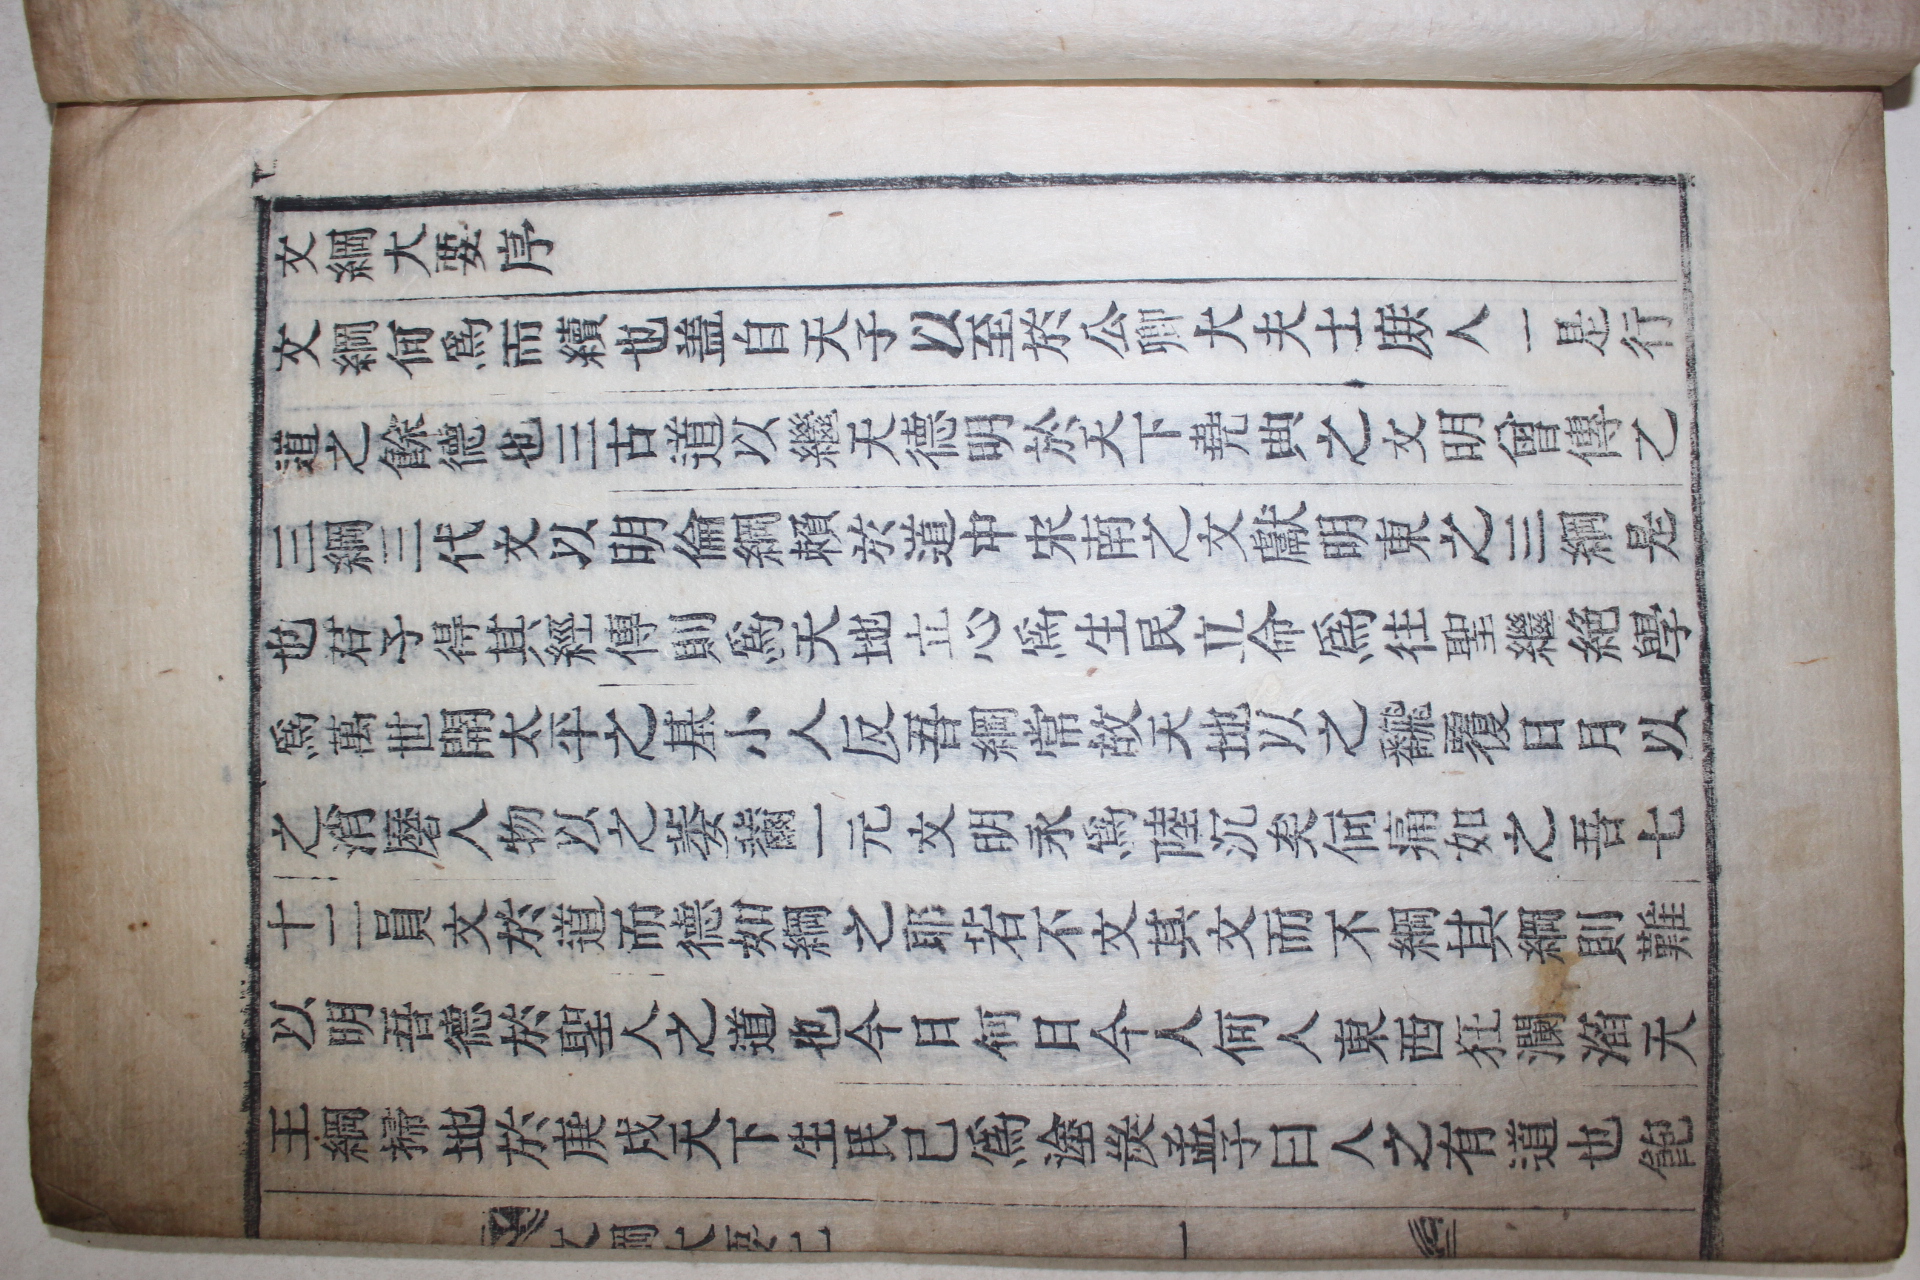 文綱大要序
文綱何爲而續也盖自天子以至於公卿大夫士庶人一是行
道之餘德也三古道以繼天德明於天下堯典之文明曾傳之
三綱三代文以明倫綱賴於道中宋南之文獻明東之三綱是
也君子得其經傳則爲天地立心爲生民立命爲往聖繼絶學
爲萬世開太平之基小人反吾綱常故天地以之飜覆日月以
之消磨人物以之萎薾一元文明永爲陸沉矣何痛如之吾七
十二員文於道而德如綱之耶若不文其文而不綱其綱則難
以明吾德於聖人之道也今日何日今人何人東西狂瀾滔天
王綱掃地於庚戌天下生民已爲塗炭孟子曰人之有道也飽
文綱大要 一